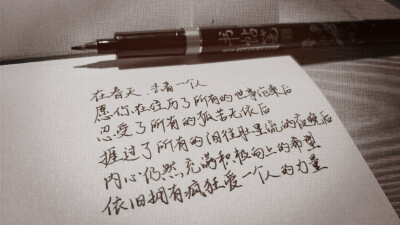 在春天 去看一个人
愿你在经历了所有的世事沧桑后
忍受了所有的孤苦无依后
过了所有的泪往肚里流的夜晚后
内心仍然充满积极向上的希望
依旧拥有疯狂爱一个人的力量